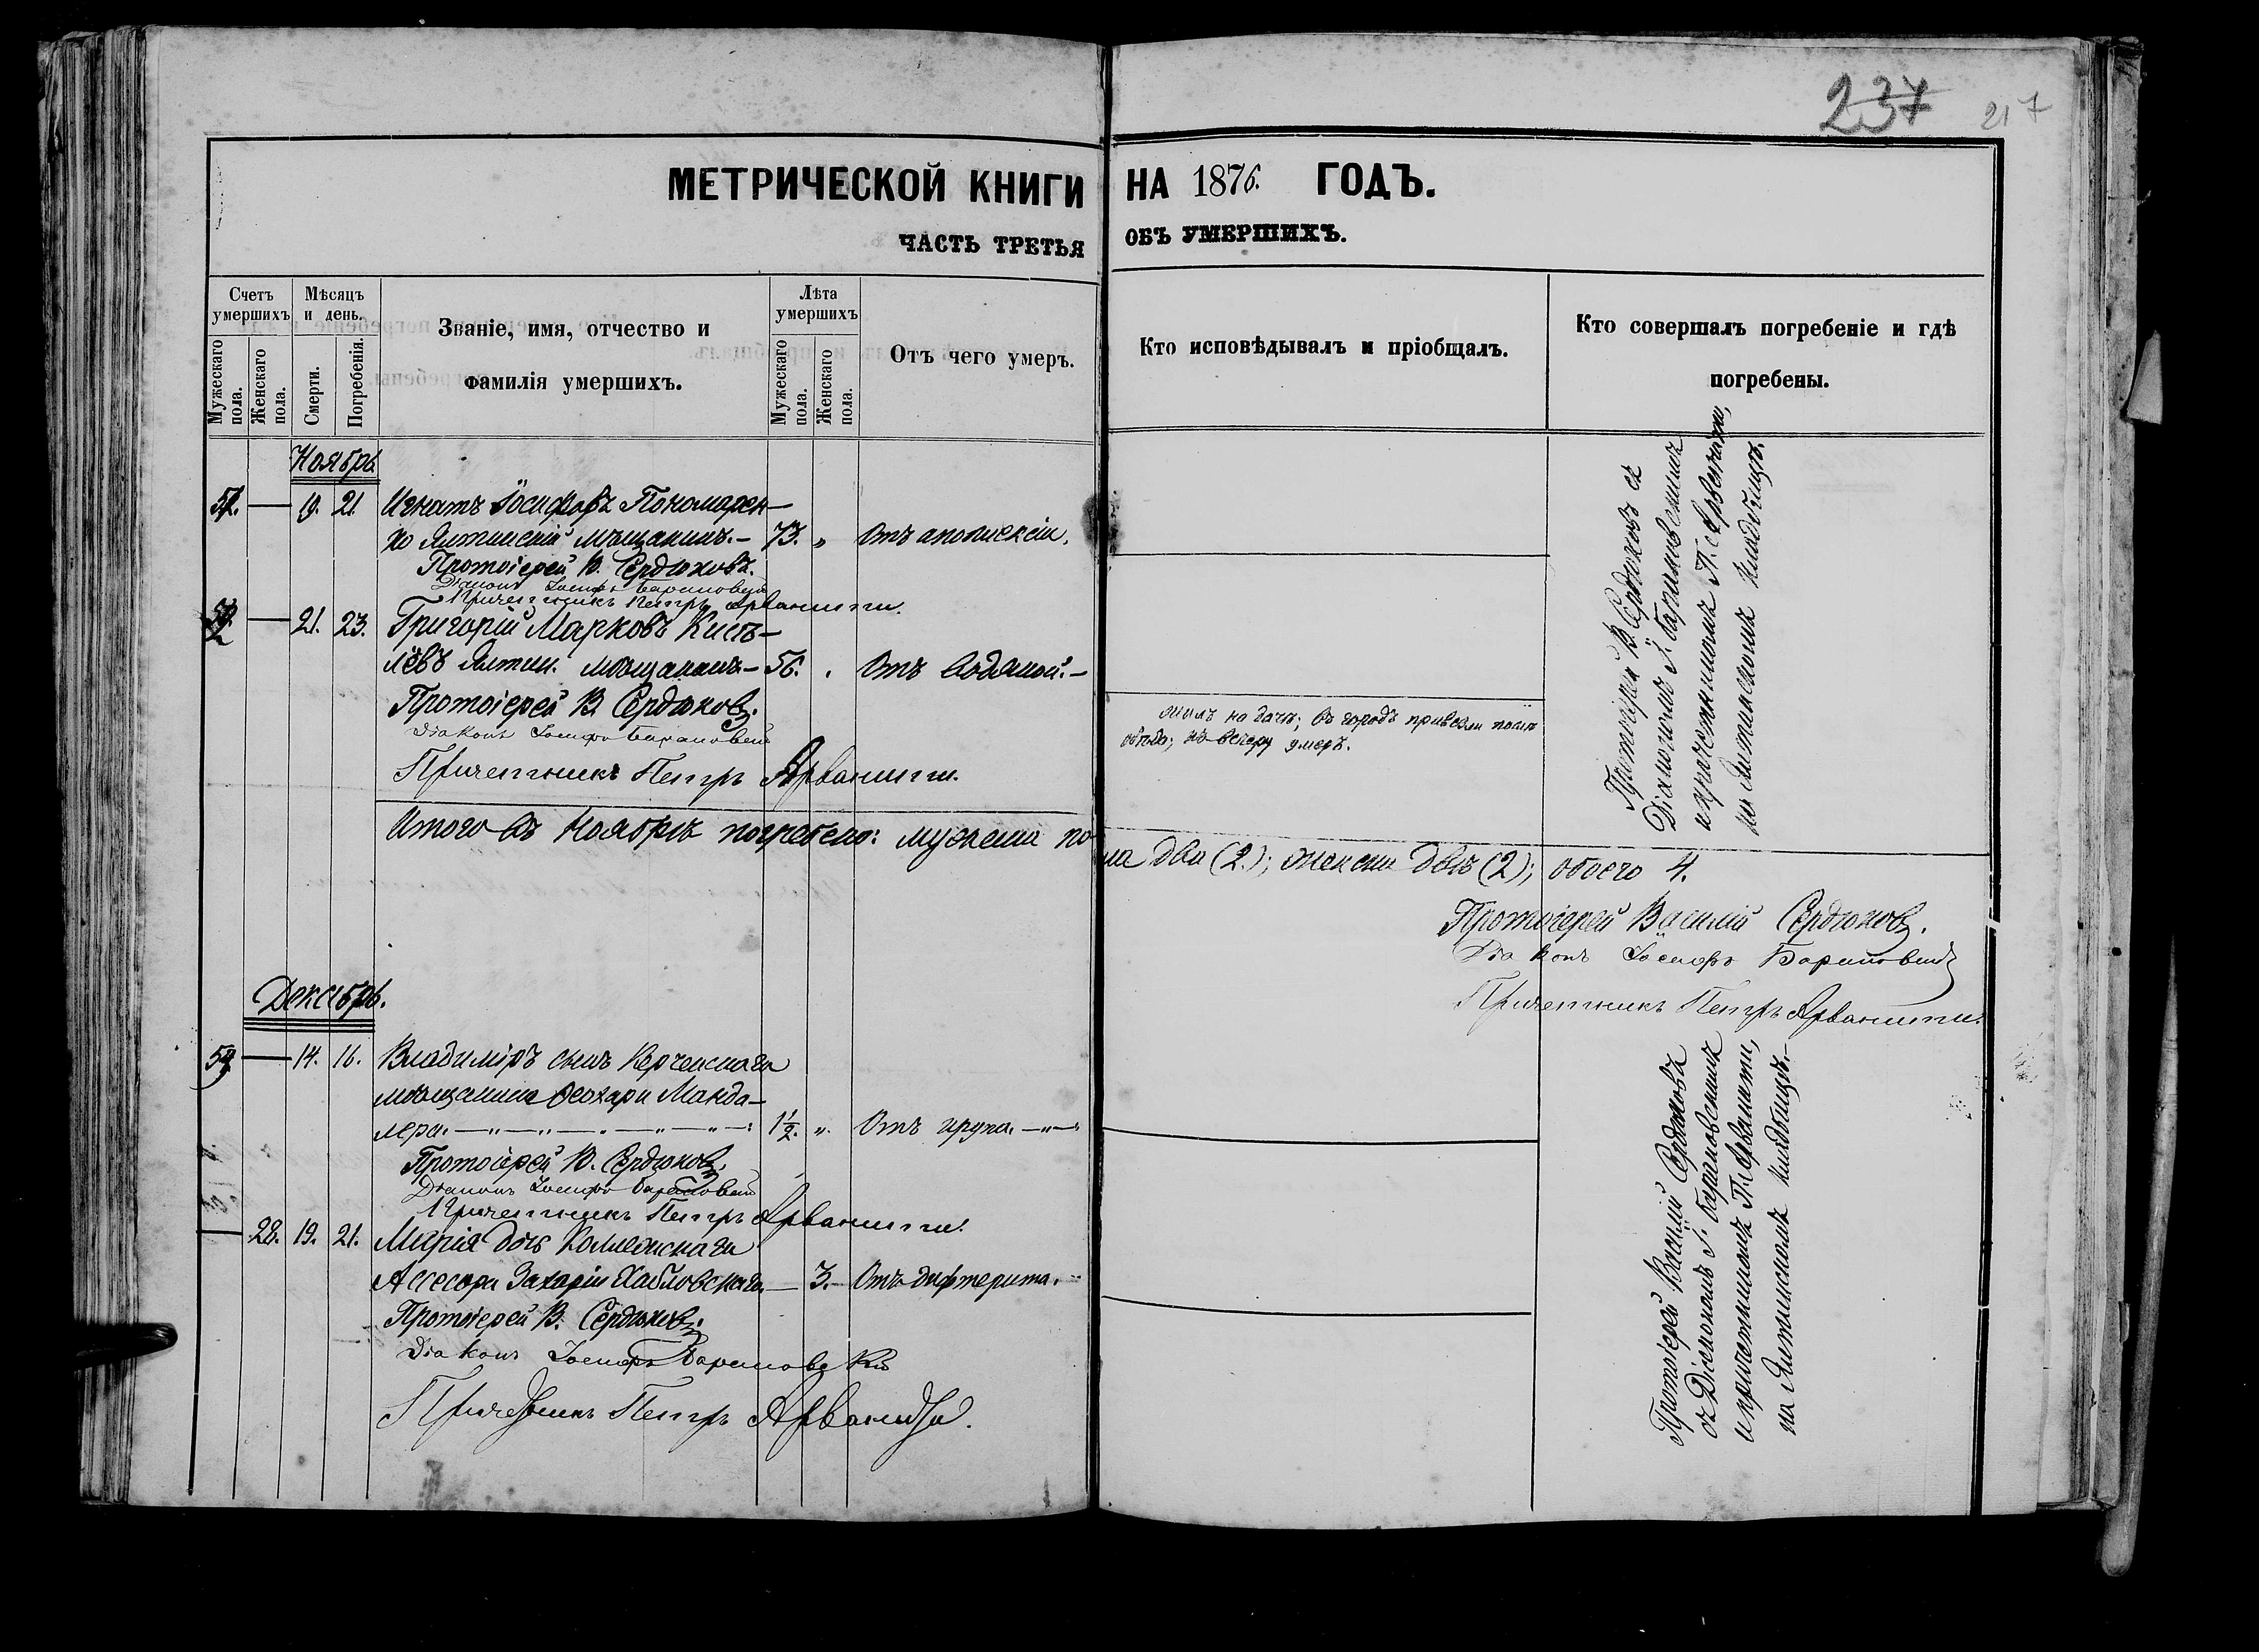 237
217
МЕТРИЧЕСКОЙ КНИГИ НА 1876. ГОДЪ.
ЧАСТЬ ТРЕТЬЯ ОБЪ УМЕРШИХЪ.
Счетъ умершихъ
Мужескаго пола.
Женскаго пола.
Мѣсяцъ и день.
Смерти.
Погребенія.
Званіе, имя, отчество и
фамилія умершихъ.
Лѣта умершихъ
Мужескаго пола.
Женскаго пола.
Отъ чего умеръ.
Кто исповѣдывалъ и пріобщалъ.
Кто совершалъ погребеніе и гдѣ
погребены.
Ноябрь
57. — 19. 21. Игнатъ Іосифовъ Пономарен-
ко Ялтинскій мѣщанинъ. — 73. „ Отъ апоплексіи.
Протоіерей В. Сердюковъ.
Діаконъ Іосифъ Барановскій
Причетникъ Петръ Арванити.
— 21. 23. Григорій Марковъ Кисе-
лёвъ Ялтин. мѣщанинъ — 56. . Отъ водяной. —
Протоіерей В. Сердюковъ.
Діаконъ Іосифъ Барановскій
Причетникъ Петръ Арванити.
жилъ на дачѣ; въ городъ привезли послѣ
обѣда; къ вечеру умеръ.
Протоіерей В. Сердюковъ съ
Діакономъ І. Барановскимъ
и причетникомъ П. Арванити,
на Ялтинскомъ кладбищѣ.
Итого въ Ноябрѣ погребено: мужеска по-
ла два (2.); женска двѣ (2); обоего 4.
Протоіерей Василій Сердюковъ.
Діаконъ Іосифъ Барановскій
Причетникъ Петръ Арванити.
Декабрь.
59 — 14. 16. Владиміръ сынъ Керченскаго
мѣщанина Ѳеохари Манда-
лера. — „ — „ — . — „ — „ — : 1½. „. Отъ крупа. — „ —
Протоіерей В. Сердюковъ.
Діаконъ Іосифъ Барановскій
Причетникъ Петръ Арванити.
— 28. 19. 21. Марія дочь Коллежскаго
Ассесора Захарія Хабловскаго. — 3. — Отъ дифтерита.
Протоіерей В. Сердюковъ.
Діаконъ Іосифъ Барановскій
Причетникъ Петръ Арванити.
Протоіерей Василій Сердюковъ
съ Діакономъ І. Барановскимъ
и причетникомъ П. Арванити,
на Ялтинскомъ кладбищѣ. —